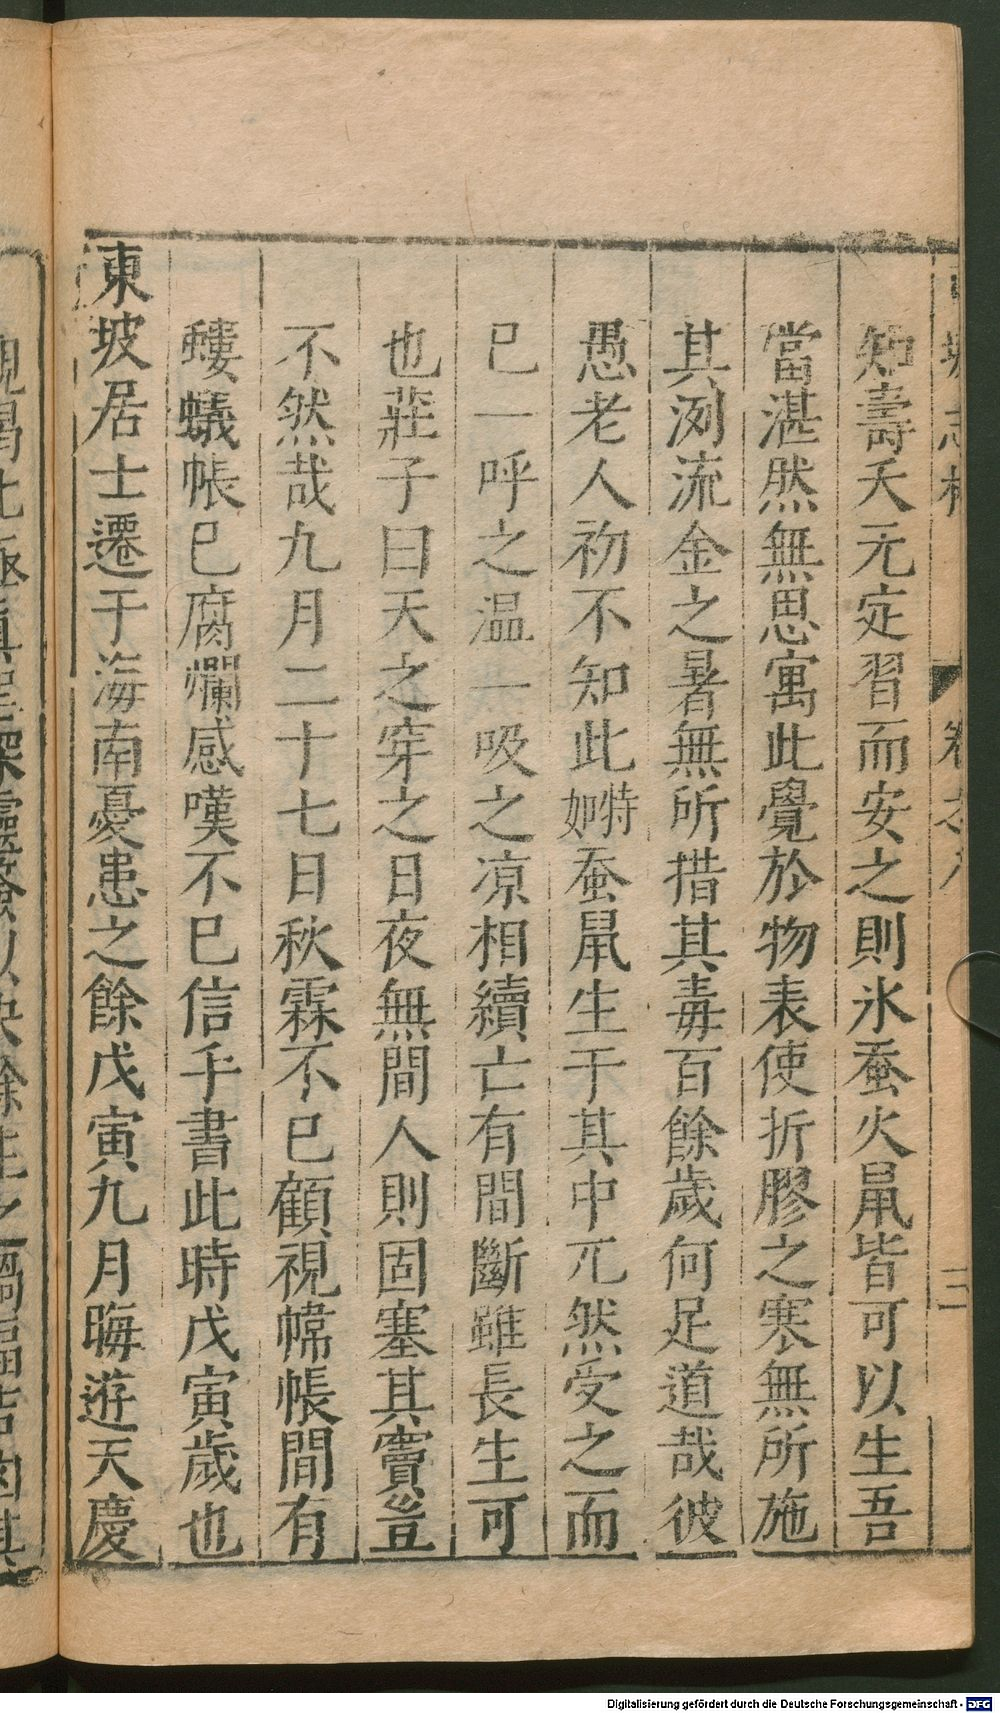 知壽夭元定習而安之則氷蚕火鼠皆可以生吾
當湛然無思寓此覺於物表使折膠之寒無所施
其洌流金之暑無所措其毒百餘歲何足道哉彼
愚老人初不知此如特蚕鼠生于其中兀然受之而
已一呼之温一吸之凉相續亡有間斷雖長生可
也莊子曰天之穿之日夜無間人則固塞其竇豈
不然哉九月二十七日秋霖不已顧視幃帳間有
螻蟻帳已腐爛感嘆不已信手書此時戊寅歲也
東坡居士遷于海南憂患之餘戊寅九月晦遊天慶
Digitalisierung gefördert durch die Deutsche Forschungsgemeinschaft - DFG